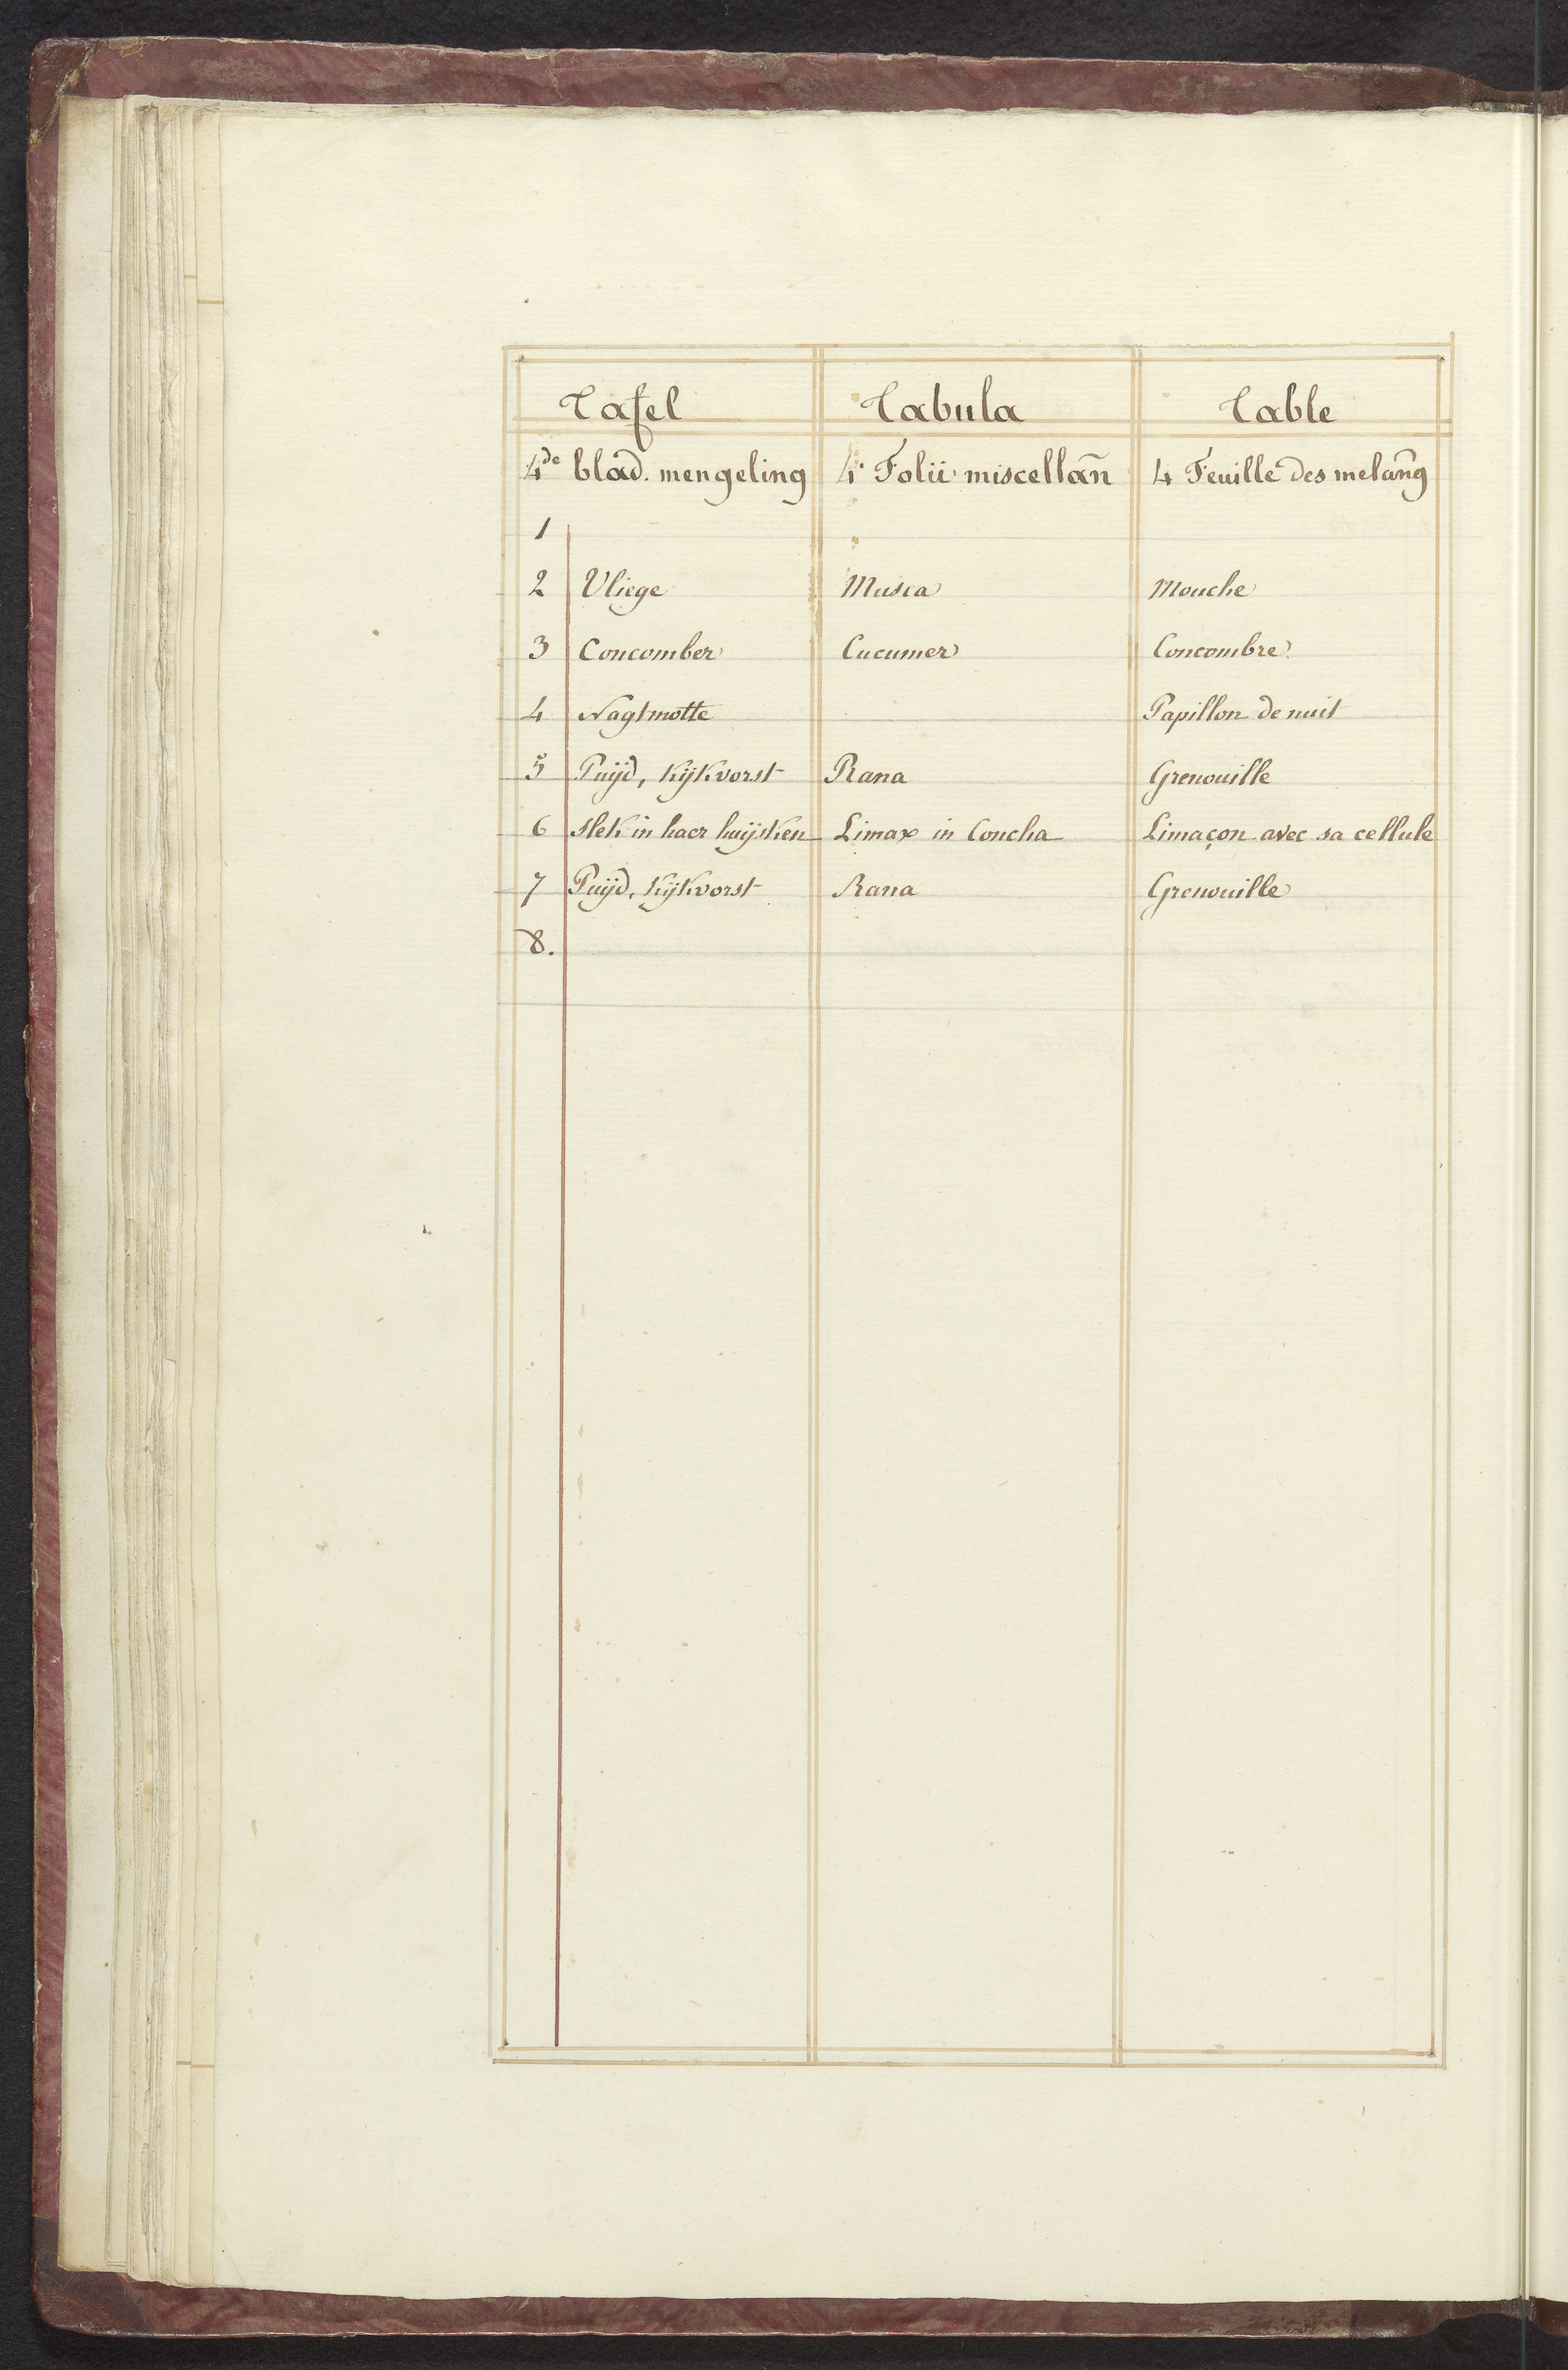 Tafel Tabula Table
4de blad. mengeling 4. Folii miscellan̄ 4 Feuille des melan̄g
1
2 Vliege Musca Mouche
3 Concomber Cucumer Concombre
4 Nagtmotte Papillon de nuit
5 Puijd, Kijkvorst Rana Grenouille
6 slek in haer huijsken Limax in Concha Limaçon avec sa cellule
7 Puijd, Kijkvorst Rana Grenouille
8.